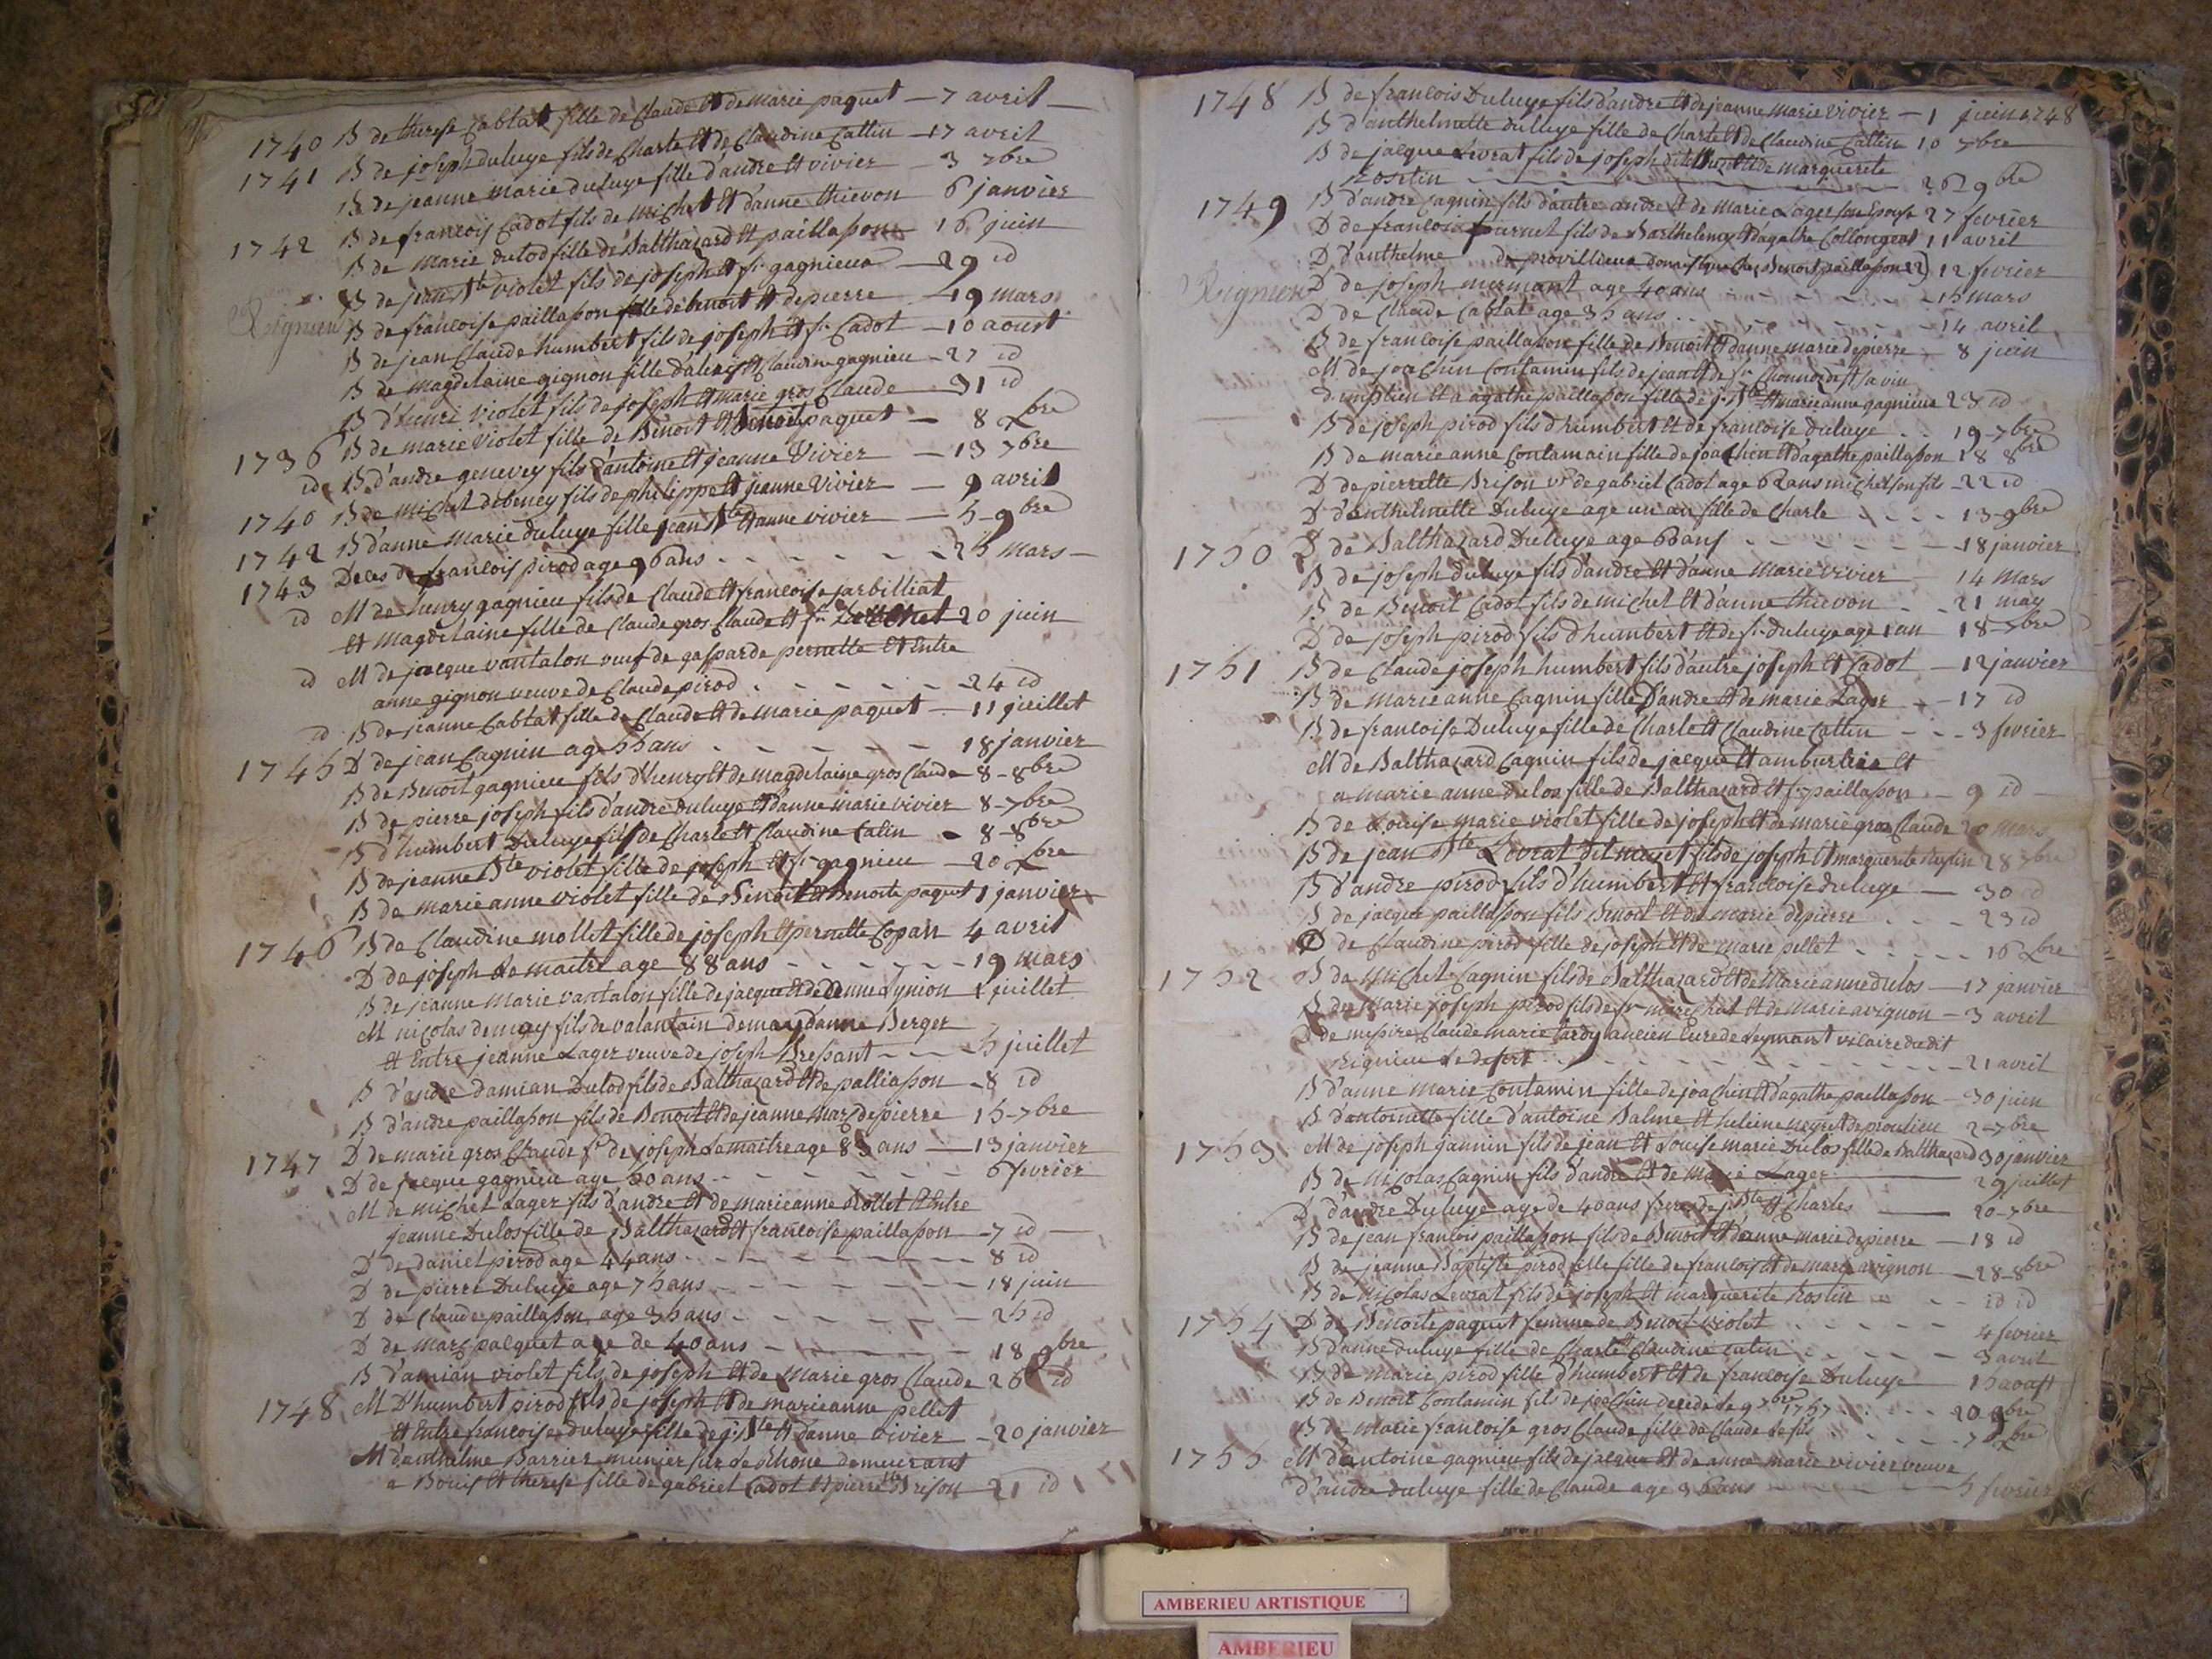 1740 B de therese Cablat fille de Claude et de marie paquet — 7 avril —
1741 B de joseph duluye fils de Charle et de Claudine Cattin — 17 avril
B de jeanne marie duluye fille d'andre et vivier — 3 7bre
B de francois Cadot fils de michel et d'anne thievon 6 janvier
1742 B de marie dulod fille de Balthazard et paillasson 16 juin
B de jean Bte violet fils de joseph et fse gagnieux — 29 id
Rignieu B de francoise paillasson fille de benoit et depierre — 19 mars
B de jean Claude humbert fils de joseph et fse Cadot — 10 aoust
B de magdelaine gignon fille d'alexis et Claudine gagnieu — 27 id
B d'henri violet fils de joseph et marie gros Claude — 31 id
1736 B de marie violet fille de Benoit et Benoite paquet — 8 Xbre
id B d'andre genevey fils d'antoine et jeanne vivier — 13 7bre
1740 B de michel debeney fils de philippe et jeanne vivier — 9 avril
1742 B d'anne marie duluye fille jean Bte et anne vivier — 5 9bre
1743 Deces de francois pirod age 96 ans - - - 25 mars —
id M de henry gagnieu fils de Claude et francoise jarbilliat
et magdelaine fille de Claude gros Claude et fse 20 juin
id M de jacque vantalon veuf de gasparde pernette et Entre
anne gignon veuve de Claude pirod - - - 24 id
id B de jeanne Cablat fille de Claude et de marie paquet — 11 juillet
1745 D de jean Cagnin age 55 ans - - - 18 janvier
B de Benoit gagnieu fils d'henry et de magdelaine gros Claude 8-8bre
B de pierre joseph fils d'andre duluye et d'anne marie vivier 8-7bre
B d'humbert Duluye fils de Charle et Claudine Catin - 8-8bre
B de jeanne Bte violet fille de joseph et fse gagnieu — 20 Xbre
B de marie anne violet fille de Benoit et Benoite paquet 1 janvier
1746 B de Claudine mollet fille de joseph et pernette Copan 4 avril
D de joseph le maitre age 88 ans - - - 19 mars
B de jeanne marie vantalon fille de jacque et de anne Cynion 1 juillet
M nicolas demay fils de valantain demay d'anne Berger
et Entre jeanne Lager veuve de joseph Bressant - - - 5 juillet
B d'andre damian Dulod fils de Balthazard et de palliasson - 8 id
B d'andre paillasson fils de Benoit et de jeanne mar depierre 15-7bre
1747 D de marie gros Claude fe de joseph Lemaitre age 85 ans — 13 janvier
D de jacque gagnieu age 50 ans - - - 6 fevrier
M de michel Lager fils d'andre et de marieanne Rollet et Entre
jeanne Dulos fille de Balthazard et francoise paillasson - 7 id —
D de daniel pirod age 44 ans - - - 8 id
D de pierre Duluye age 75 ans - - - 18 juin
D de Claude paillasson age 35 ans - - - 25 id
D de marc pacquet age de 40 ans - - - 18 9bre
B d'amian violet fils de joseph et de marie gros Claude 26 id
1748 M D'humbert pirod fils de joseph et de marieanne pellet
et Entre francoise duluye fille de j. Bte et d'anne vivier - 20 janvier
M d'anthelme Barrier munier sur le Rhone demeurant
a Bouis et therese fille de gabriel Cadot et pierrette Brison - 21 id
1748 B de francois Duluye fils d'andre et de jeanne marie vivier — 1 juin 1748
B d'anthelmette duluye fille de Charle et de Claudine Cattin 10 7bre
B de jacque Levrat fils de joseph dit et de marguerite
rostin - - - 26 9bre
1749 B d'andre Cagnin fils d'autre andre et de marie Lager son Epouse 27 fevrier
D de francois fournet fils de Barthelemy et d'agathe Collongeat 11 avril
D d'anthelme de provillieu domestique Chez Benoit paillasson 12 fevrier
Rignieu D de joseph murmant age 40 ans - - - 15 mars
D de Claude Cablat age 35 ans - - - 14 avril
B de francoise paillasson fille de Benoit et d'anne marie depierre - 8 juin
M de joachin Contamin fils de jean et de fse
et a agathe paillasson fille de j. Bte et marie anne gagnieux 23 id
B de joseph pirod fils d'humbert et de francoise duluye - - 19 7bre
B de marie anne Contamain fille de joachin et d'agathe paillasson 18 8bre
D de pierrette Brison ve de gabriel Cadot age 62 ans michel son fils - 22 id
D d'anthelmette Duluye age un an fille de Charle - - - 13-9bre
1750 D de Balthazard Duluye age 60 ans - - - 18 janvier
B de joseph duluye fils d'andre et d'anne marie vivier - 14 mars
B de Benoit Cadot fils de michel et d'anne thievon - - 21 may
D de joseph pirod fils d'humbert et de fse duluye age 1 an 18-7bre
1751 B de Claude joseph humbert fils d'autre joseph et Cadot — 12 janvier
B de marie anne Cagnin fille d'andre et de marie Lager - - 17 id
B de francoise Duluye fille de Charle et Claudine Cattin - - - 3 fevrier
M de Balthazard Cagnin fils de jacque et Et
a marie anne dulos fille de Balthazard et fse paillasson - 9 id -
B de Louise marie violet fille de joseph et de marie gros Claude 20 mars
B de jean Bte Levrat dit fils de joseph et marguerite 28 7bre
B d'andre pirod fils d'humbert et francoise duluye — 30 id
B de jacque paillasson fils Benoit et de marie depierre - - - 23 id
D de Claudine pirod fille de joseph et de marie pellet - - - 16 Xbre
1752 B de michel Cagnin fils de Balthazard et de marie anne dulos — 17 janvier
B de marie joseph pirod fils de fse et de marie avignon — 3 avril
D de messire Claude marie tardy ancien Cure de Leymant vicaire du dit
Rignieu le desert - - - 21 avril
B d'anne marie Contamin fille de joachin et d'agathe paillasson - 30 juin
B d'antoinette fille d'antoine Balme et heleine de proulieu 2-7bre
1753 M de joseph jannin fils de jean et Louise marie Dulos fille de Balthazard 30 janvier
B de nicolas Cagnin fils d'andre et de marie Lager — 29 juillet
D d'andre Duluye age de 40 ans frere de j. Bte et Charles — 20-7bre
B de jean francois paillasson fils de Benoit et d'anne marie depierre — 18 id
B de jeanne Baptiste pirod fille fille de francois et de marie avignon — 28-8bre
B de nicolas Levrat fils de joseph et marguerite Rostin - - id id
1754 D de Benoite paquet femme de Benoit violet - - - 4 fevrier
B d'anne duluye fille de Charle et Claudine Catin - - - 3 avril
B de marie pirod fille d'humbert et de francoise Duluye — 15 aoust
B de Benoit Contamin fils de joachin decede le 9 7bre 1757 - - - 20 9bre
B de marie francoise gros Claude fille de Claude le fils - - - 7 Xbre
1755 M d'antoine gagnieu fils de jacque et de anne marie vivier veuve
d'andre duluye fille de Claude age 36 ans - - - 5 fevrier
AMBERIEU ARTISTIQUE
AMBERIEU